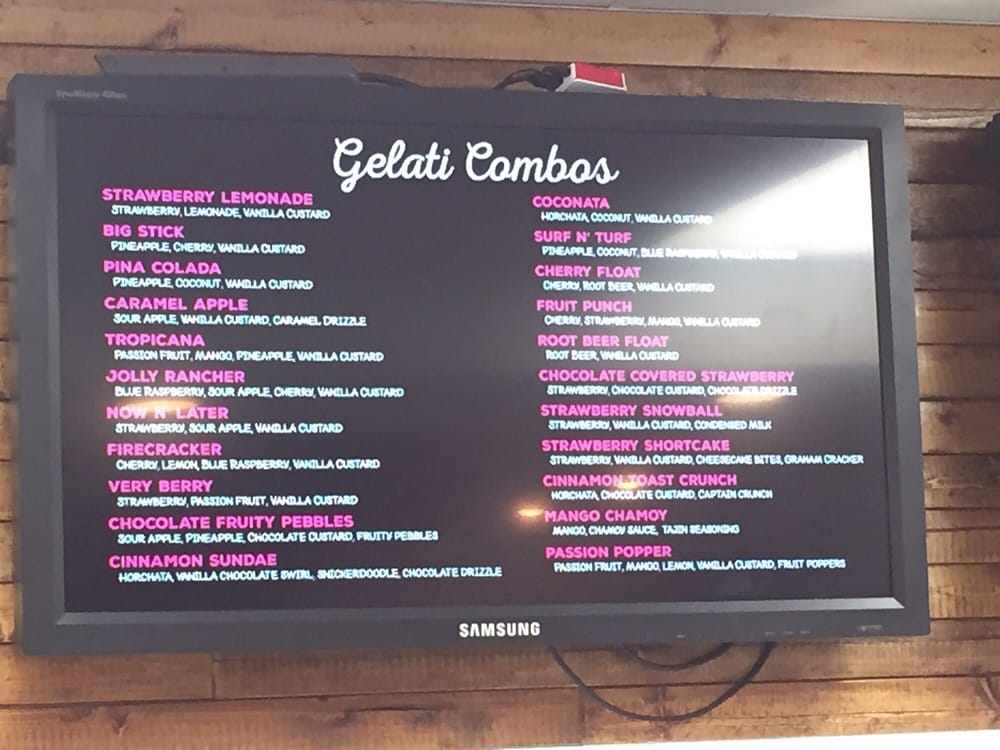 SyncMaster
Gelati Combos
STRAWBERRY LEMONADE
STRAWBERRY, LEMONADE, VANILLA CUSTARD
BIG STICK
PINEAPPLE, CHERRY, VANILLA CUSTARD
PINA COLADA
PINEAPPLE, COCONUT, VANILLA CUSTARD
CARAMEL APPLE
SOUR APPLE, VANILLA CUSTARD, CARAMEL DRIZZLE
TROPICANA
PASSION FRUIT, MANGO, PINEAPPLE, VANILLA CUSTARD
JOLLY RANCHER
BLUE RASPBERRY, SOUR APPLE, CHERRY, VANILLA CUSTARD
NOW N' LATER
STRAWBERRY, SOUR APPLE, VANILLA CUSTARD
FIRECRACKER
CHERRY, LEMON, BLUE RASPBERRY, VANILLA CUSTARD
VERY BERRY
STRAWBERRY, PASSION FRUIT, VANILLA CUSTARD
CHOCOLATE FRUITY PEBBLES
SOUR APPLE, PINEAPPLE, CHOCOLATE CUSTARD, FRUITY PEBBLES
CINNAMON SUNDAE
HORCHATA, VANILLA CHOCOLATE SWIRL, SNICKERDOODLE, CHOCOLATE DRIZZLE
COCONATA
HORCHATA, COCONUT, VANILLA CUSTARD
SURF N' TURF
PINEAPPLE, COCONUT, BLUE RASPBERRY, VANILLA CUSTARD
CHERRY FLOAT
CHERRY, ROOT BEER, VANILLA CUSTARD
FRUIT PUNCH
CHERRY, STRAWBERRY, MANGO, VANILLA CUSTARD
ROOT BEER FLOAT
ROOT BEER, VANILLA CUSTARD
CHOCOLATE COVERED STRAWBERRY
STRAWBERRY, CHOCOLATE CUSTARD, CHOCOLATE DRIZZLE
STRAWBERRY SNOWBALL
STRAWBERRY, VANILLA CUSTARD, CONDENSED MILK
STRAWBERRY SHORTCAKE
STRAWBERRY, VANILLA CUSTARD, CHEESECAKE BITES, GRAHAM CRACKER
CINNAMON TOAST CRUNCH
HORCHATA, CHOCOLATE CUSTARD, CAPTAIN CRUNCH
MANGO CHAMOY
MANGO, CHAMOY SAUCE, TAJIN SEASONING
PASSION POPPER
PASSION FRUIT, MANGO, LEMON, VANILLA CUSTARD, FRUIT POPPERS
SAMSUNG